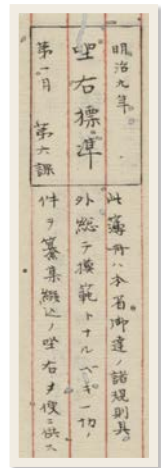 明治九年
坐右標準
第一月 第六課
此簿冊ハ本省御達ノ諸規則具
外総テ摸範トナルベキ一切ノ
件ヲ纂集綴込ノ坐右ヲ便ニ供ス